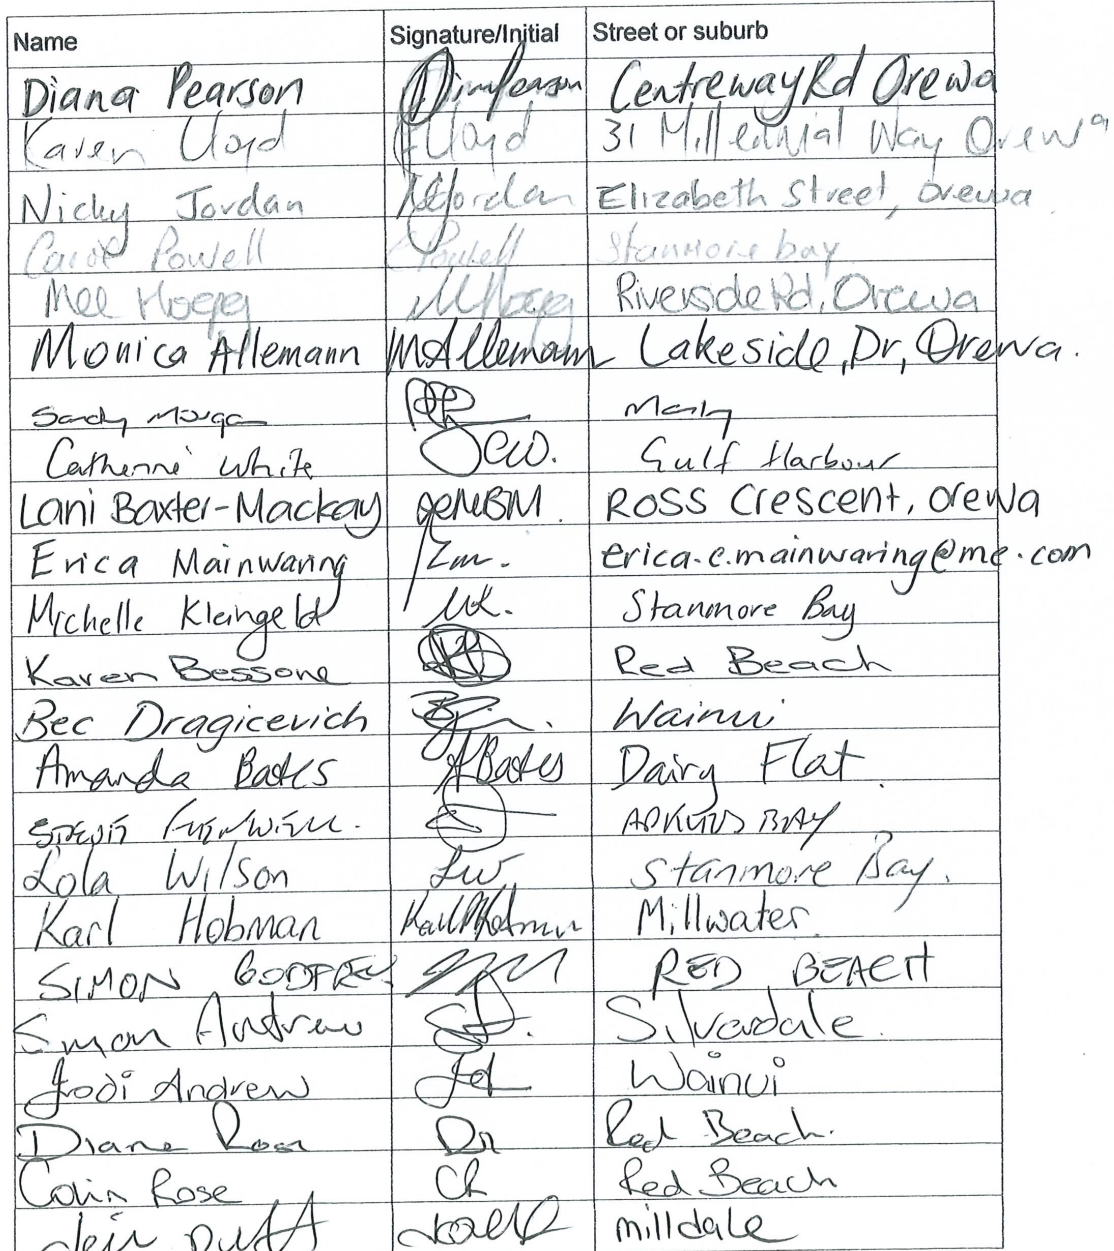 Name Signature/Initial Street or suburb
Diana Pearson Centreway Rd Orewa
Karen Lloyd Lloyd 31 Millennial Way Orewa
Nicky Jordan Jordan Elizabeth Street, Orewa
Carol Powell Powell Stanmore bay
Mel Hogg MHogg Riverside Rd, Orewa
Monica Allemann MAllemann Lakeside, Dr, Orewa.
Sandy Morgan
Catherine White Gulf Harbour
Lani Baxter-Mackay Ross Crescent, Orewa
Erica Mainwaring Em. erica.c.mainwaring@me.com
Michelle Kleingeld MK. Stanmore Bay
Karen Bessone Red Beach
Bec Dragicevich Wainui
Amanda Bates ABates Dairy Flat
BAY
Lola Wilson LW Stanmore Bay.
Karl Hobman Millwater
SIMON GODFREY RED BEACH
Simon Andrew Silverdale.
Jodi Andrew JA Wainui
Diane Rose DR Red Beach.
Colin Rose CR Red Beach
milldale